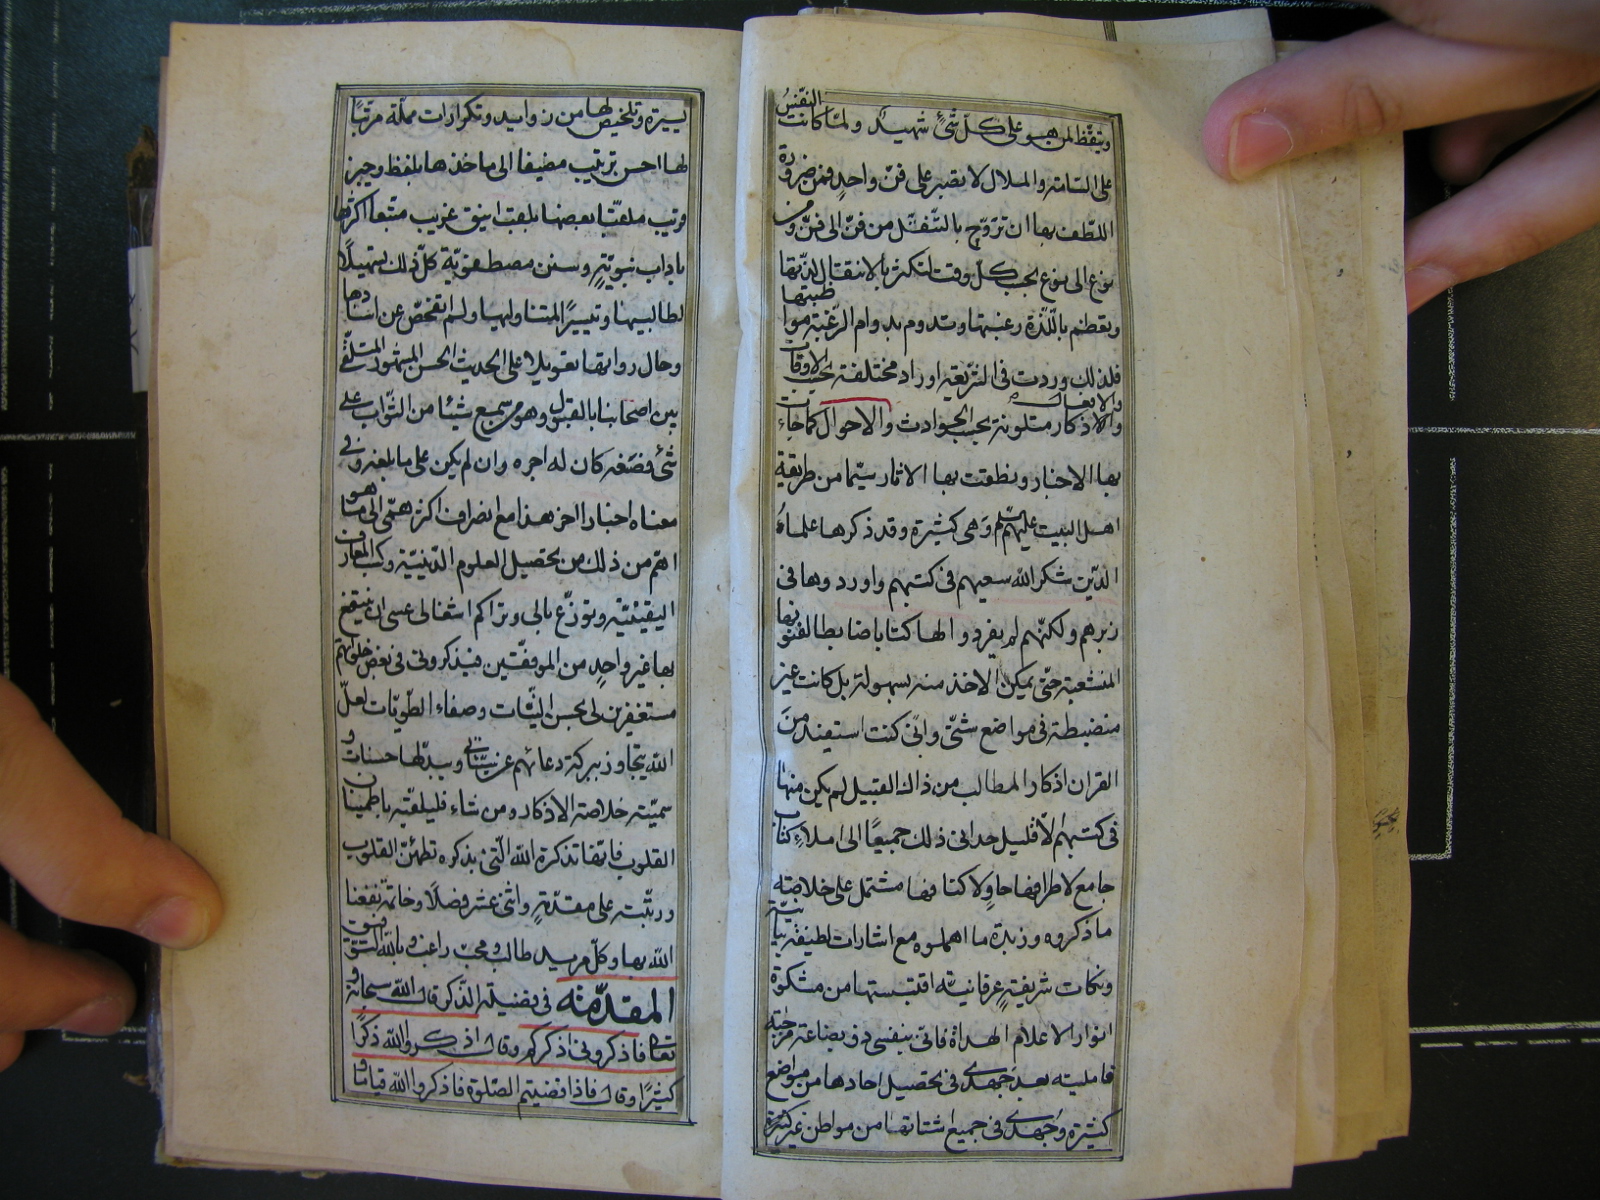 وتيقظ لمن هو على كل شئ شهيد ولما كانت النفس
على السّامة والملال لا تصبر على فنّ واحد فمن ضرورة
اللطف بها ان تروّح بالتنقّل من فنّ الى فنّ ومن
نوع الى نوع بحسب كل وقت لتكثر بالانتقال لذّتها
وتعظم باللّذة رغبتها وتدوم بدوام الرّغبة مواظبتها
فلذلك وردت فى الشريعة اوراد مختلفة بحسب الاوقات
والاذكار متلونة بحسب الحوادث والاحوال والافعال كما جاءت
بها الاخبار ونطقت بها الاثار سيّما من طريقة
اهل البيت عليهم السلم وهى كثيرة وقد ذكرها علماء
الدّين شكر الله سعيهم فى كتبهم واوردوها فى
زبرهم ولكنّهم لم يفردوا لها كتابا ضابطا لفنونها
المنشعبة حتّى يمكن الاخذ منه بسهولة بل كانت غير
منضبطة فى مواضع شتّى وانّى كنت استفيد من
القران اذكار المطالب من ذاك القبيل لم يكن منها
فى كتبهم الّا قليل حدانى ذلك جميعًا الى املاء كتاب
جامع لاطرافها حاوٍ لاكنافها مشتمل على خلاصة
ما ذكروه وزبدة ما اهملوه مع اشارات لطيفة
ونكات شريفةٍ عرفانيّة اقتبستها من مشكوة
انوار الاعلام الهداة فانّى بنفسى ذو بضاعة مزجاة
فامليته بعد جهدى فى تحصيل احادها من مواضع
كثيرة وجهدى فى جميع اشتاتها من مواطن غير
يسيرة وتلخيص لها من زوايد وتكرارات مملّة مرتبًا
لها احسن ترتيب مضيفا الى ماخذها بلفظ وجيز
بعضها بلفت انيق غريب متبعا اكثرها
باداب نبويّةٍ وسنن مصطفويّة كل ذلك تسهيلًا
لطالبيها وتيسيرًا لمتناوليها ولم اتفحّص عن اسنادها
وحال رواتها تعويلا على الحديث الحسن المشهور المتلقّى
بين اصحابنا بالقبول وهو من سمع شيئا من الثّواب على
شئ فصنعه كان له اجره وان لم يكن على ما بلغه وفى
معناه اخبار اخر هذا مع انصراف اكثر همّى الى ما هو
اهمّ من ذلك من تحصيل العلوم الدّينيّة وكسب المعارف
اليقينيّة وتوزّع بالى وتراكم اشغالى عسى ان ينتفع
بها غير واحد من الموفّقين فيذكرونى فى بعض خلواتهم
مستغفرين لى بحسن النيّات وصفاء الطّويّات لعلّ
الله يتجاوز ببركة دعائهم عن سيّئاتى ويبدّلها حسنات و
سمّيته خلاصة الاذكار ومن شاء فليلقّبه باطمينان
القلوب فانّها تذكرة الله الّتى بذكره تطمئنّ القلوب
ورتّبته على مقدّمةٍ واثنى عشر فصلًا وخاتمة نفعنا
الله بها وكلّ مريد طالب ومحبّ راغب وبالله التّوفيق
المقدّمة فى فضيلة الذّكر قال الله سبحانه و
تعالى فاذكرونى اذكركم وقال اذكروا الله ذكرًا
كثيرًا وقال فاذا قضيتم الصّلوة فاذكروا الله قياما و